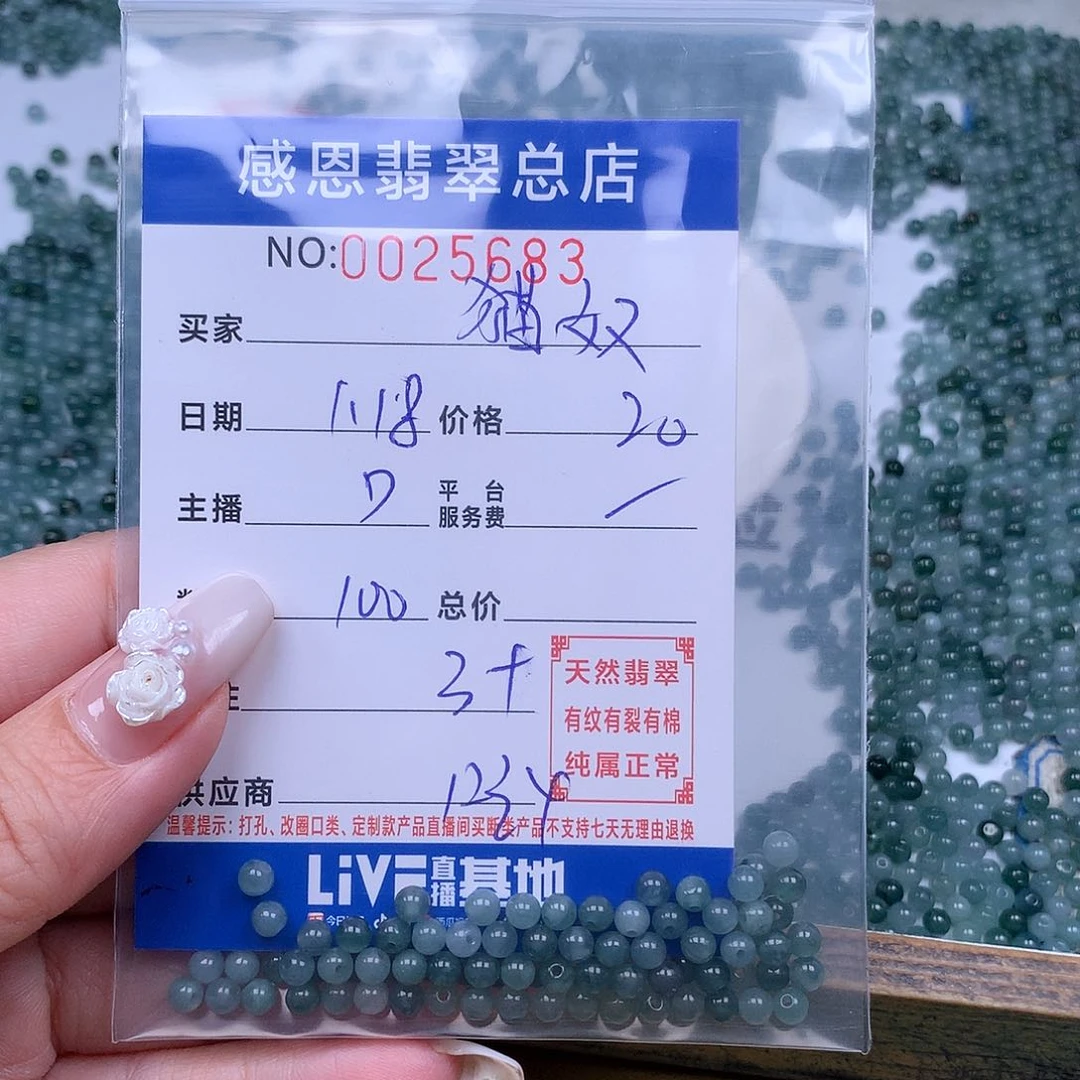 感恩翡翠总店
NO:0025683
买家 猫奴
日期 1.18 价格 20
主播 7 平台服务费 /
100 总价
3十
天然翡翠
有纹有裂有棉
纯属正常
供应商
温馨提示：打孔、改圈口类、定制款产品直播间买断类产品不支持七天无理由退换
LiVE直播基地